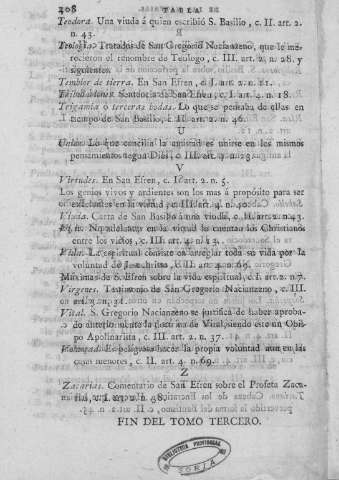 408 TABLA
Teodora. Una viuda á quien escribió S. Basilio, c. II. art. 2.
n. 43.
Teologia. Tratados de San Gregorio Nacianzeno, que le me-
recieron el renombre de Teologo, c. III. art. 2. n. 28. y
siguientes.
Temblor de tierra. En San Efren, c. I. art. 2. n. 21.
Sentencia de San Efren, c. I. art. 4. n. 18.
Trigamia ó terceras bodas. Lo que se pensaba de ellas en
tiempo de San Basilio, c. II. art. 2. n. 46.
U
Union. Lo que concilia la amistad es unirse en los mismos
pensamientos segun c. III. art. 4. n. 23.
V
Virtudes. En San Efren, c. I. art. 2. n. 5.
Los genios vivos y ardientes son los mas á propósito para ser
excelentes en la virtud, c. II. art. 4. n. 40.
Viuda. Carta de San Basilio á una viuda, c. II. art. 2. n. 43.
No adelantar en la virtud lo cuentan los Christianos
entre los vicios, c. III. art. 4. n. 13.
Vida. La espiritual consiste en arreglar toda su vida por la
voluntad de Jesu-Christo, c. III. art. 4. n. 65.
Máximas de S. Efren sobre la vida espiritual, c. I. art. 2. n. 7.
Virgenes. Testimonio de San Gregorio Nacianzeno, c. III.
art. 2. n. 31.
Vital. S. Gregorio Nacianzeno se justifica de haber aproba-
do anteriormente la doctrina de Vital, siendo este un Obis-
po Apolinarista, c. III. art. 2. n. 37.
Voluntad. Es peligroso hacer la propia voluntad aun en las
cosas menores, c. II. art. 4. n. 69.
Z
Zacarias. Comentario de San Efren sobre el Profeta Zaca-
rias, c. I. art. 2. n. 38.
FIN DEL TOMO TERCERO.
BIBLIOTECA PROVINCIAL
SORIA